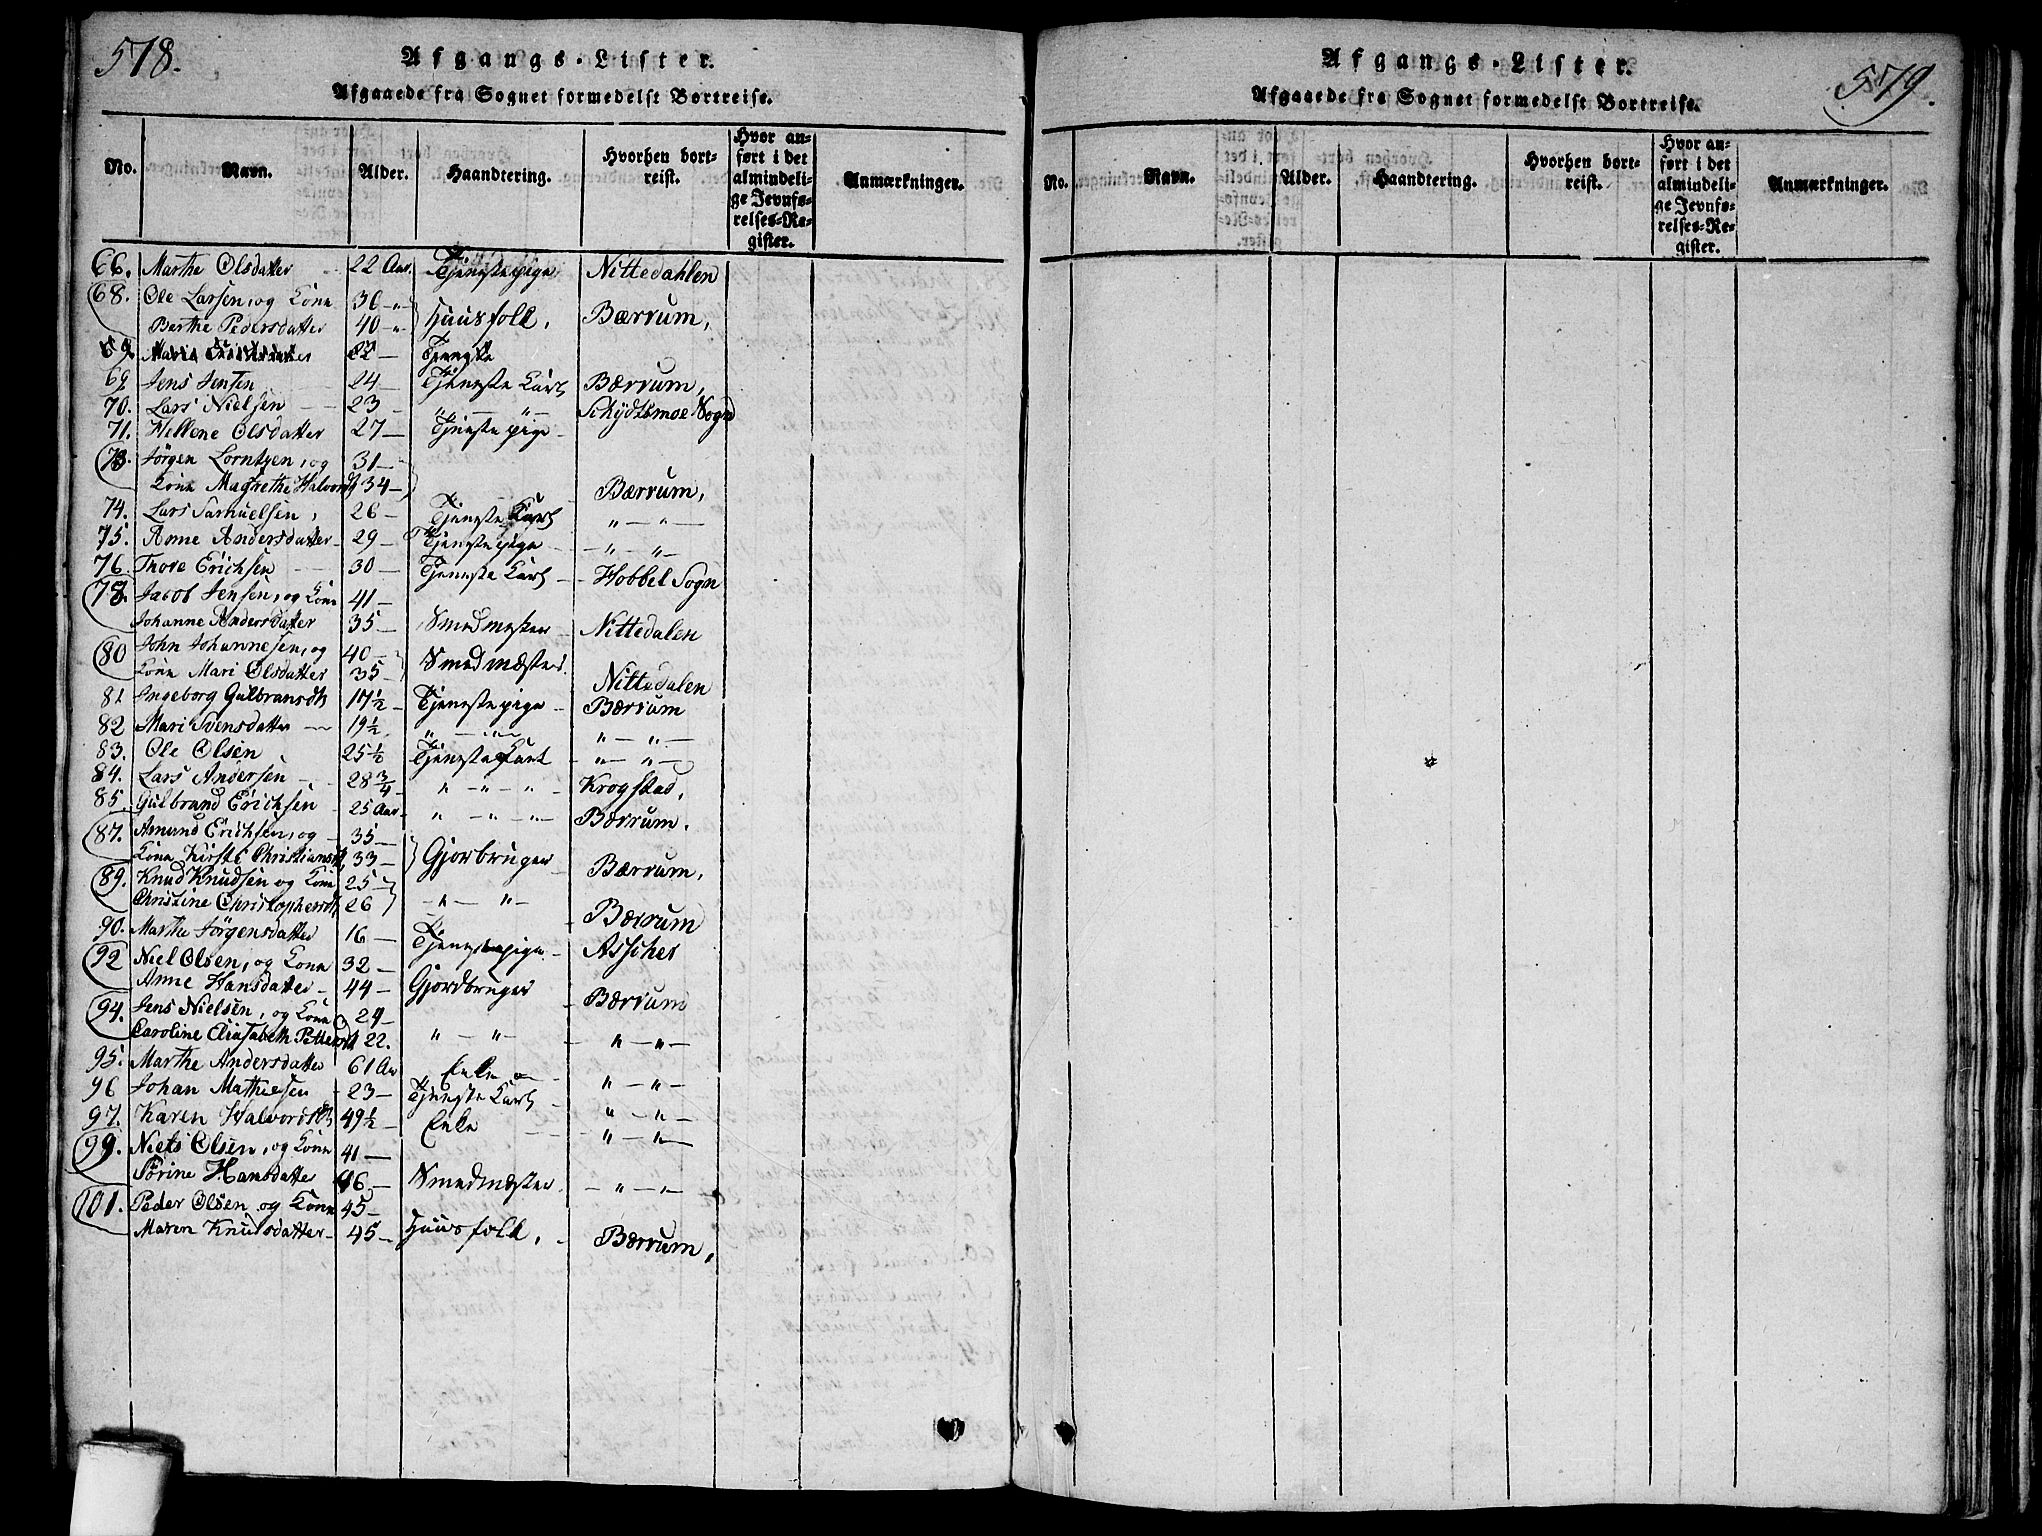 578.
Afgangs-Lister.
Afgaaede fra Sognet formedelst Bortreise.
No. Navn. Alder. Haandtering. Hvorhen bort-reist. Hvor an-ført i det almindeli-ge Jevnfø-relses-Re-gister. Anmærkninger.
66. Marthe Olsdatter 22 Aar Tjenestepige Nittedahlen
68. Ole Larsen, og Kone 36 - "
Berthe Pedersdatter 40 - " Huusfolk, Bærrum,
Tjeneste
69 Jens Jensen 24 - Tjeneste Karl Bærrum,
70. Lars Nielsen 23 - " — " — Schydtsmoe Sogn
71. Hellene Olsdatter 27 - Tjenestepige -
73. Jørgen Lorntzen, og 31 -
Kone Magrethe Halvorsd 34 - Bærrum,
74. Lars Samuelsen, 26 - Tjeneste Karl " — " —
75. Anne Andersdatter - 29 - Tjenestepige — " — " —
76. Thore Erichsen 30 - Tjeneste Karl - Hobbel Sogn
78. Jacob Jensen, og Kone 41 -
Johanne Andersdatter 35 - Smedmester Nittedalen
80 John Johannesen, og 40 -
Kone Mari Olsdatter 35 - Smedmæster. Nittedalen
81 Ingeborg Gulbransdt 17½ - Tjenestepige - Bærrum
82 Mari Svensdatter — 19½. " — " — " — " —
83. Ole Olsen 25½ Tjeneste Karl - " — " —
84. Lars Andersen - 28¾ - " - " - " - Krogstad,
85. Gulbrand Erichsen - 25 Aar - " - " - " - Bærrum.
87. Amund Erichsen, og - 35 -
Kone Kirsti Christiansd, 33 - Gjorbruger Bærrum,
89. Knud Knudsen og Kone 25 -
Christine Christophersdt 26 - " — " - Bærrum
90. Marthe Jørgensdatter 16 - Tjenestepige - Asscher
92 Niel Olsen, og Kone 32 -
Anne Hansdatter - 44 - Gjordbruger - Bærrum
94. Jens Nielsen, og Kone 24 -
Caroline Eliasabeth Pettersdt 22. " — " - " — " —
95. Marthe Andersdatter 61 Aar Enke - " — " —
96 Johan Mathiesen - 23 - Tjeneste Karl - " — " —
97. Karen Halvorsdt 49½ - Enke - " — " —
99. Niels Olsen, og Kone 41 -
Sørine Hansdatter 46 - Smedmæster. — " — " —
101. Peder Olsen og Kone 45 -
Maren Knudsdatter - 45 - Huusfolk, - Bærrum,
579.
Afgangs-Lister.
Afgaaede fra Sognet formedelst Bortreise.
No. Navn. Alder. Haandtering. Hvorhen bort-reist. Hvor an-ført i det almindeli-ge Jevnfø-relses-Re-gister. Anmærkninger.